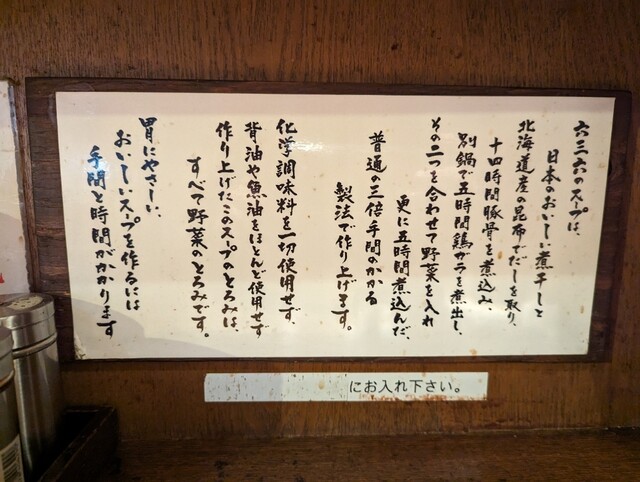 六三六のスープは、
日本のおいしい煮干しと
北海道産の昆布でだしを取り、
十四時間豚骨を煮込み
別鍋で五時間鶏ガラを煮出し、
その二つを合わせて野菜を入れ
更に五時間煮込んだ、
普通の三倍手間のかかる
製法で作り上げます。
化学調味料を一切使用せず、
背油や魚油をほとんど使用せず
作り上げたこのスープのとろみは、
すべて野菜のとろみです。
胃にやさしい、
おいしいスープを作るには
手間と時間がかかります
にお入れ下さい。